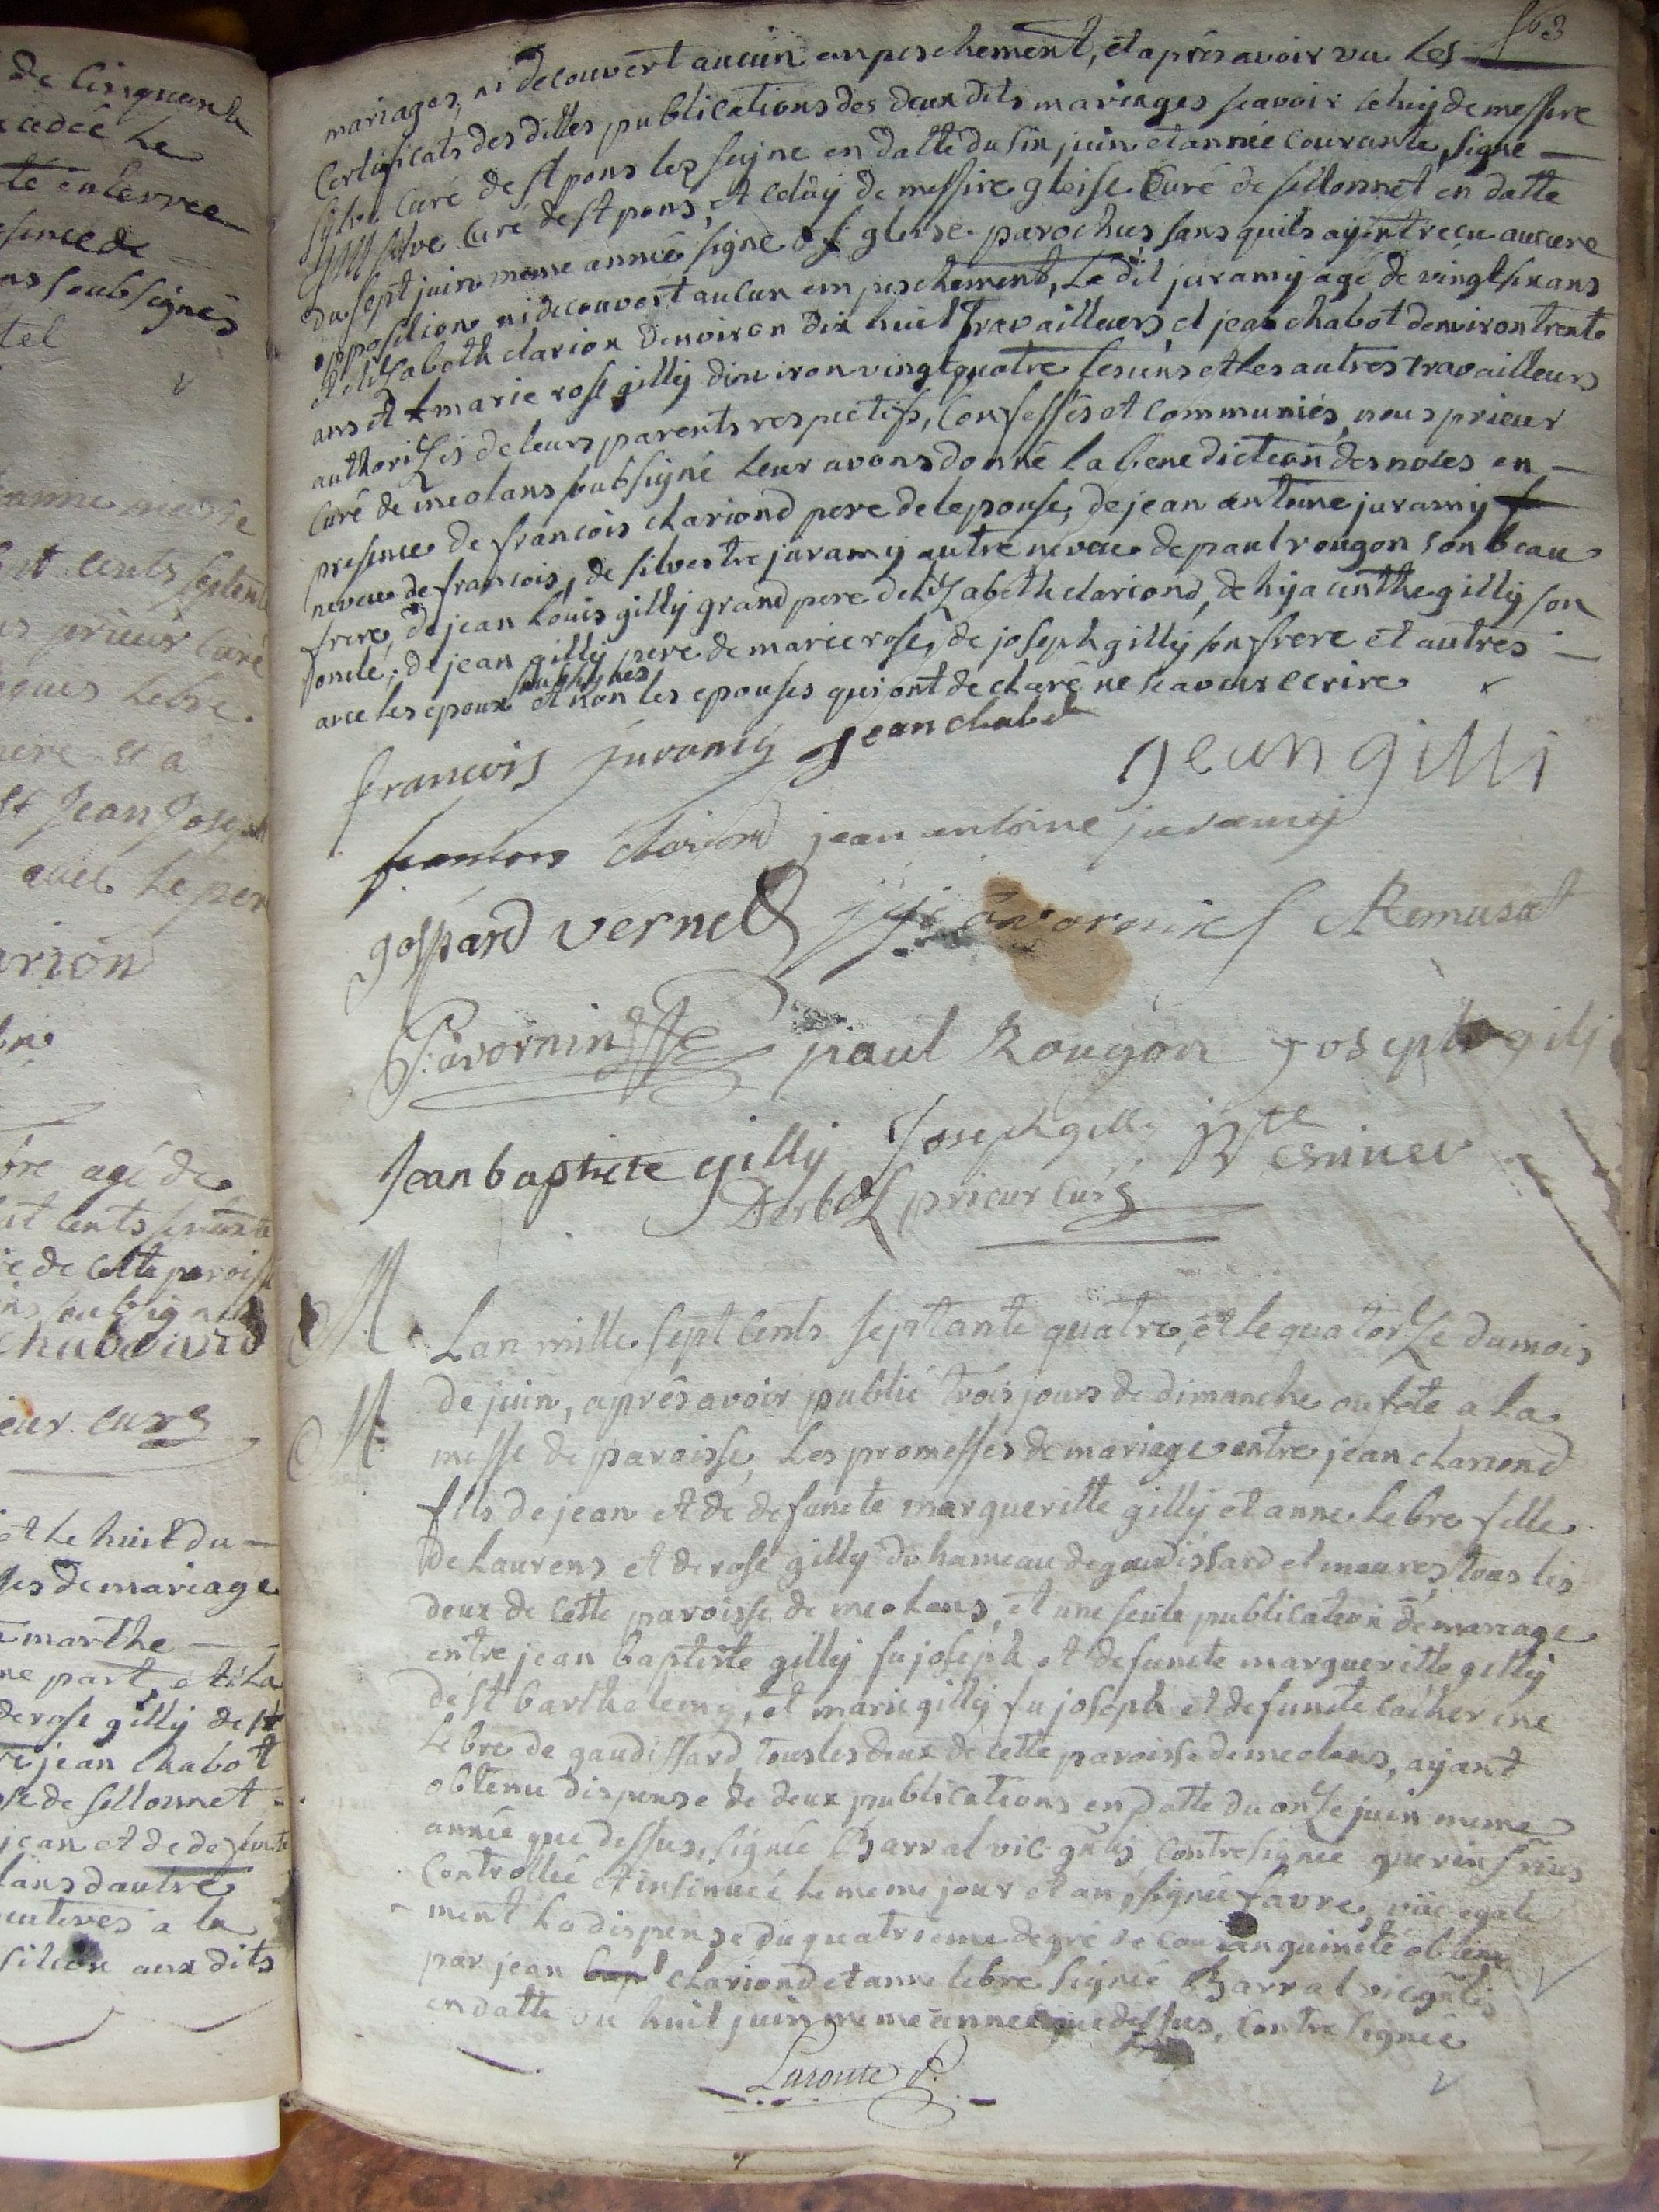 de cinquante
te enterree
ns soubsignés
tel
prieur curé
Lebre
et a
et Jean Joseph
avec le per
arion
bre agé de
de cette paroisse
ieur curé
et le huit du
les de mariage
marthe
ne part, et la
de rose gilly de st
jean chabot
de sellonnet
jean et de defunte
lans d'autre
a la
sition aux dits
563
mariages, ni decouvert aucun enpeschement, et aprés avoir vu les
certificats des dittes publications des deux dits mariages scavoir celuy de messire
sylve curé de st pons lez seyne en datte du six juin et année courante, signé
silve curé de st pons, et celuy de messire gleise curé de sellonnet en datte
du sept juin meme année signé gleise parochus sans quils ayint recu aucune
opposition ni decouvert aucun empeschement, Le dit juramy agé de vingt six ans
et elizabeth clarion denviron dix huit travailleurs, et jean chabot denviron trente
ans et marie rose gilly dinviron vingt quatre les uns et les autres travailleurs
authorizés de leurs parents respectifs, confessés et communiés, nous prieur
curé de meolans soubsigné leur avons donné la benediction des noces en
presence de francois clariond pere de lepouse, de jean antoine juramy
neveu de francois, de silvestre juramy autre neveu de paul rougon son beau
frere, de jean louis gilly grand pere delizabeth clariond, de hyacinthe gilly son
oncle, de jean gilly pere de marie rose, de joseph gilly son frere et autres
avec les epoux soubsignés et non les epouses qui ont declaré ne scavoir ecrire
francois juramy jean chabot
jean gilli
francois clariond jean antoine juramy
gaspard vernet Remusat
P: avornin paul Rougon joseph gili
Jean baptiste gilly Joseph gilly
prieur curé
M Lan mille sept cents septante quatre, et le quatorze du mois
M de juin, aprés avoir publié trois jours de dimanche ou fete a la
messe de paroisse, Les promesses de mariage entre jean clariond
fils de jean et de defuncte margueritte gilly et anne lebre fille
de Laurens et de rose gilly du hameau de gaudissard et maures, tous les
deux de cette paroisse de meolans, et une seule publication de mariage
entre jean baptiste gilly fu joseph et defuncte margueritte gilly
de st barthelemy, et marie gilly fu joseph et defuncte catherine
Lebre de gaudissard, tous les deux de cette paroisse de meolans, ayant
obtenu dispense de deux publications en datte du onze juin meme
année que dessus, signée Barral vic gñls contresignée guerin
controllée et insinuée le meme jour et an, signée favre, vüe egale
ment La dispense du quatrieme degré de consanguinité obtenue
par jean clariond et anne lebre signée Barral vic gñls
en datte du huit juin meme année que dessus, contresignée